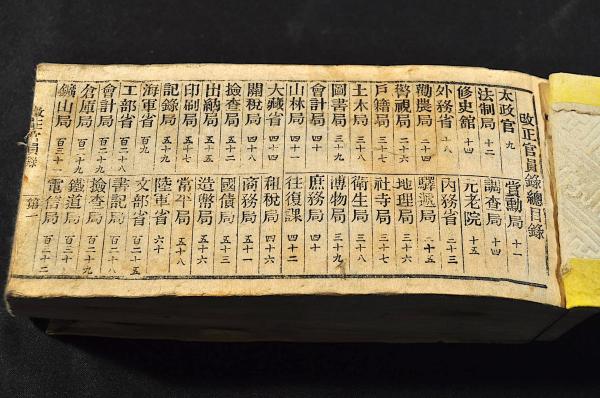 改正官員錄總目錄
太政官 九 賞勳局 十一
法制局 十二 調查局 十四
修史館 十四 元老院 十五
外務省 十八 內務省 二十三
勸農局 二十四 驛遞局 二十五
警視局 二十六 地理局 三十六
戶籍局 三十七 社寺局 三十七
土木局 三十八 衛生局 三十八
圖書局 三十九 博物局 三十九
會計局 四十 庶務局 四十
山林局 四十一 往復課 四十二
大藏省 四十四 租稅局 四十六
關稅局 四十八 商務局 五十一
檢查局 五十二 國債局 五十三
出納局 五十五 造幣局 五十六
印刷局 五十七 常平局 五十八
記錄局 五十八 陸軍省 六十
海軍省 百九 文部省
工部省 百二十八 書記局 百二十八
會計局 百二十八 檢查局 百二十九
倉庫局 百二十九 鐵道局 百二十九
鑛山局 百三十一 電信局 百三十二
改正官員錄 第一